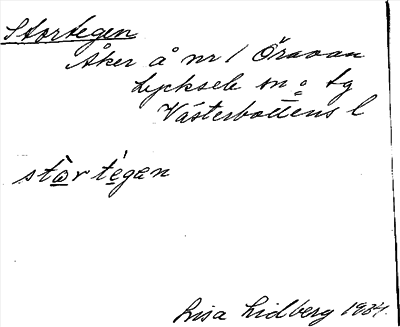 Stortegen
Åker å nr 1 Öravan
Lycksele sn o tg
Västerbottens l
stor tegen
Lisa Lidberg 1934.